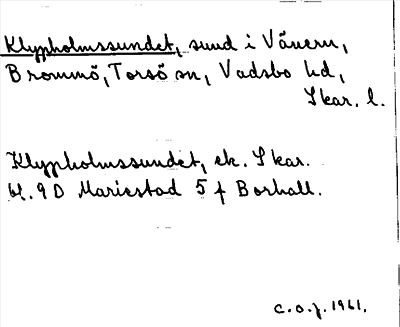 Klypholmssundet, sund i Vänern,
Brommö, Torsö sn, Vadsbo hd,
Skar. l.
Klypholmssundet, ek. Skar.
bl. 9D Mariestad 5 f Borhall.
C.O.J. 1961.